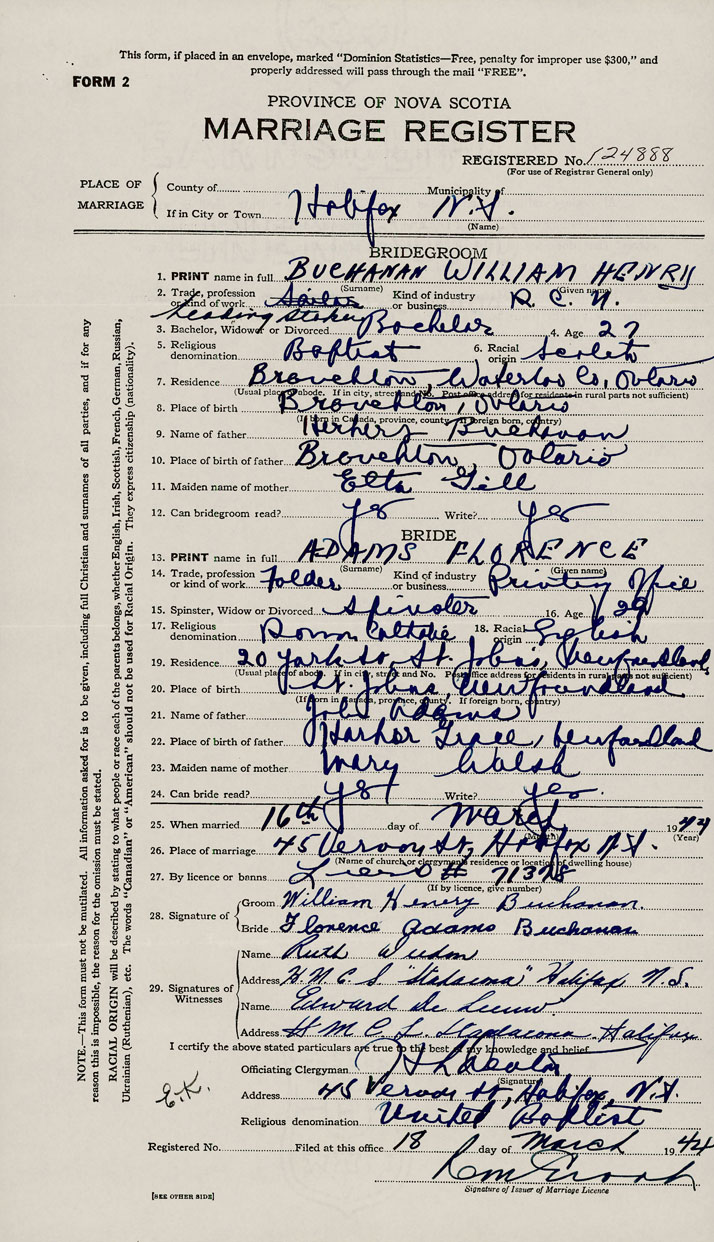 This form, if placed in an envelope, marked "Dominion Statistics—Free, penalty for improper use $300," and
properly addressed will pass through the mail "FREE".
FORM 2
PROVINCE OF NOVA SCOTIA
MARRIAGE REGISTER
REGISTERED No. 124888
(For use of Registrar General only)
PLACE OF MARRIAGE
County of Municipality of
If in City or Town Halifax N.S.
(Name)
BRIDEGROOM
1. PRINT name in full BUCHANAN WILLIAM HENRY
(Surname) (Given name)
2. Trade, profession or kind of work Sailor Leading Stoker Kind of industry or business R.C.N.
3. Bachelor, Widower or Divorced Bachelor 4. Age 27
5. Religious denomination Baptist 6. Racial origin Scotch
7. Residence Branchton, Waterloo Co, Ontario
(Usual place of abode. If in city, street and No. Post office address for residents in rural parts not sufficient)
8. Place of birth Branchton, Ontario
(If born in Canada, province, county. If foreign born, country)
9. Name of father Herbert Buchanan
10. Place of birth of father Branchton Ontario
11. Maiden name of mother Etta Gill
12. Can bridegroom read? yes Write? yes
BRIDE
13. PRINT name in full ADAMS FLORENCE
(Surname) (Given name)
14. Trade, profession or kind of work Folder Kind of industry or business Printing Office
15. Spinster, Widow or Divorced Spinster 16. Age 29
17. Religious denomination Roman Catholic 18. Racial origin English
19. Residence 20 York St, St. John's, Newfoundland
(Usual place of abode. If in city, street and No. Post office address for residents in rural parts not sufficient)
20. Place of birth St. Johns, Newfoundland
(If born in Canada, province, county. If foreign born, country)
21. Name of father John Adams
22. Place of birth of father Harbor Grace, Newfoundland
23. Maiden name of mother Mary Walsh
24. Can bride read? yes Write? yes.
25. When married 16th day of March 1944
(Month) (Year)
26. Place of marriage 45 Vernon St, Halifax N.S.
(Name of church or clergyman's residence or location of dwelling house)
27. By licence or banns # 71378
(If by licence, give number)
28. Signature of
Groom William Henry Buchanan.
Bride Florence Adams Buchanan
29. Signatures of Witnesses
Name Ruth
Address H.M.C.S "Stadacona" Halifax N.S.
Name Edward De Leeuw
Address H M C S. Stadacona Halifax
I certify the above stated particulars are true to the best of my knowledge and belief.
Officiating Clergyman
(Signature)
Address 45 Vernon St, Halifax, N.S.
Religious denomination United Baptist
Registered No. Filed at this office 18 day of March 1944
Signature of Issuer of Marriage Licence
E.K.
[SEE OTHER SIDE]
NOTE.—This form must not be mutilated. All information asked for is to be given, including full Christian and surnames of all parties, and if for any
reason this is impossible, the reason for the omission must be stated.
RACIAL ORIGIN will be described by stating to what people or race each of the parents belongs, whether English, Irish, Scottish, French, German, Russian,
Ukrainian (Ruthenian), etc. The words "Canadian" or "American" should not be used for Racial Origin. They express citizenship (nationality).